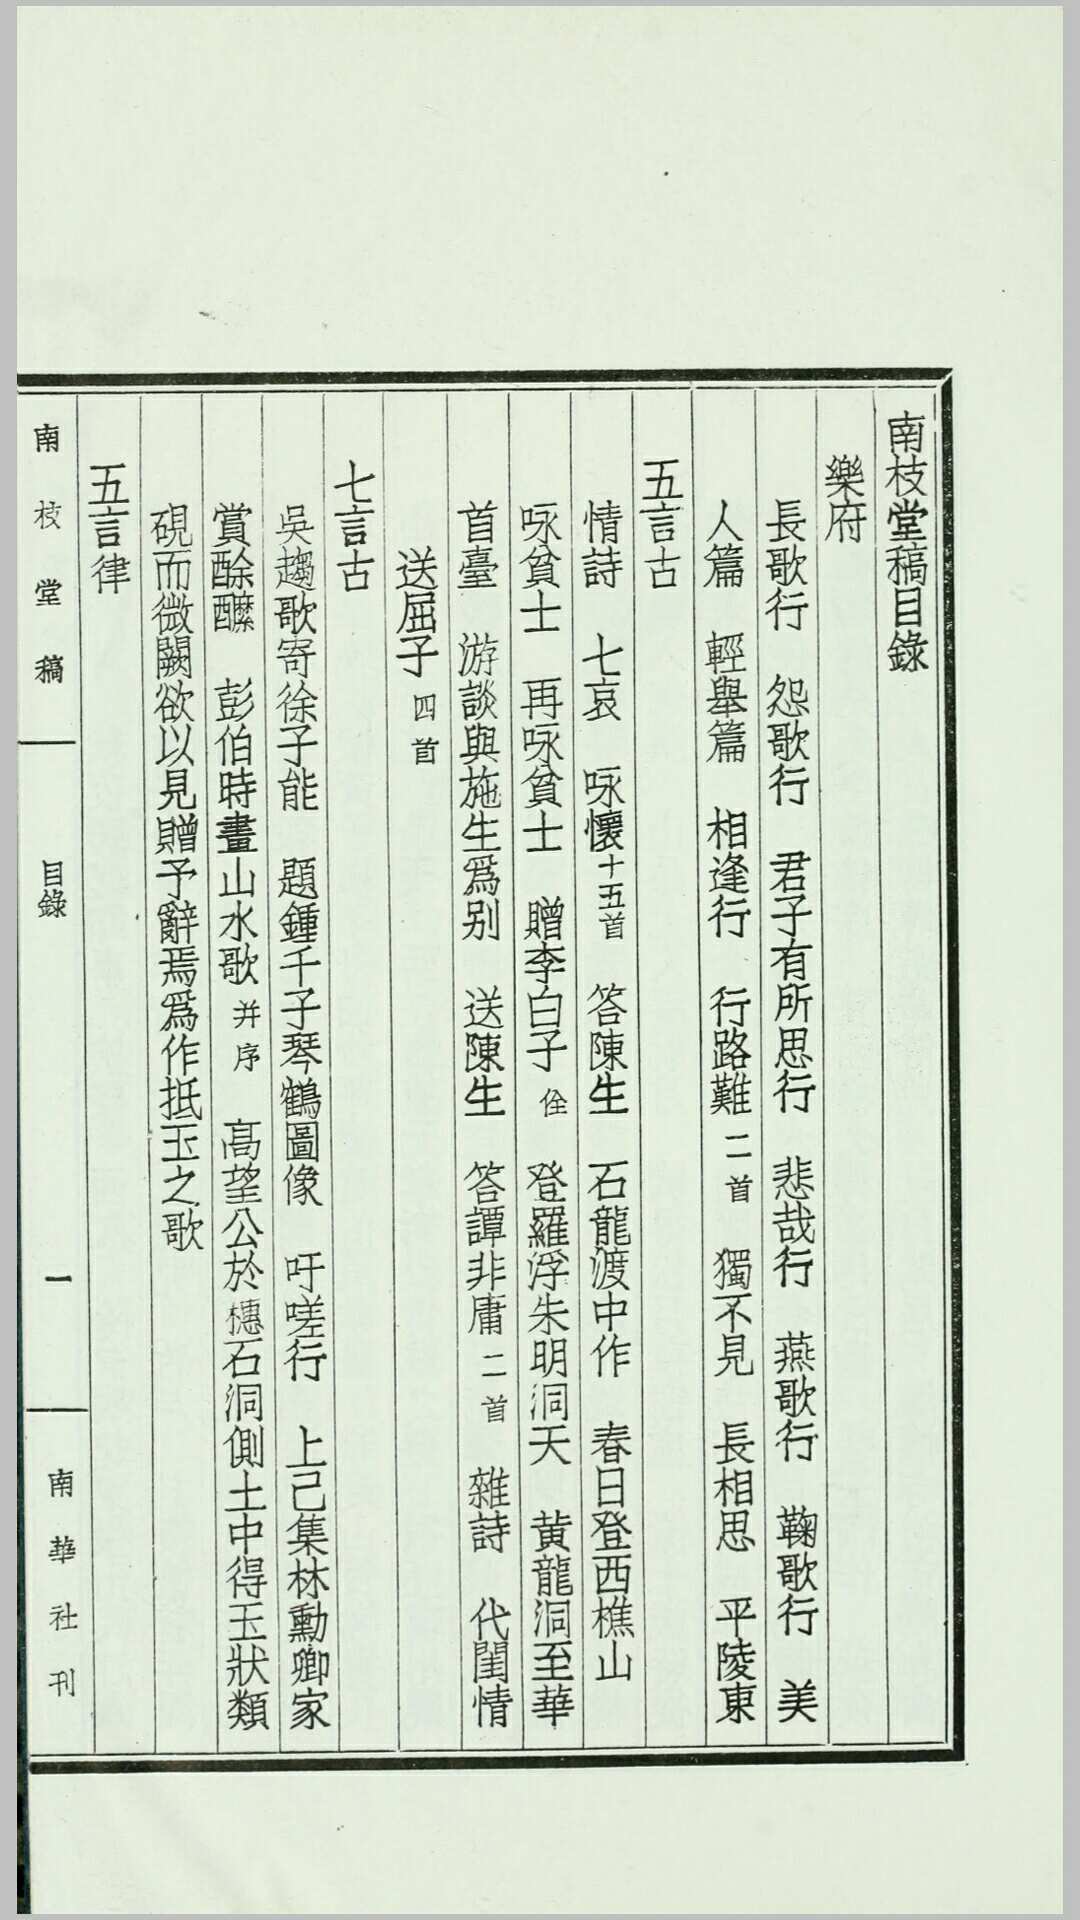 南枝堂稿目錄
樂府
長歌行　怨歌行　君子有所思行　悲哉行　燕歌行　鞠歌行　美
人篇　輕舉篇　相逢行　行路難二首　獨不見　長相思　平陵東
五言古
情詩　七哀　咏懷十五首　答陳生　石龍渡中作　春日登西樵山
咏貧士　再咏貧士　贈李白子佺　登羅浮朱明洞天　黄龍洞至華
首臺　游談與施生爲别　送陳生　答譚非庸二首　雜詩　代閨情
送屈子四首
七言古
吳趨歌寄徐子能　題鍾千子琴鶴圖像　吁嗟行　上己集林勳卿家
賞酴醿　彭伯時畫山水歌并序　高望公於橞石洞側土中得玉狀類
硯而微闕欲以見贈予辭焉爲作抵玉之歌
五言律
南枝堂稿　目錄　一　南華社刊